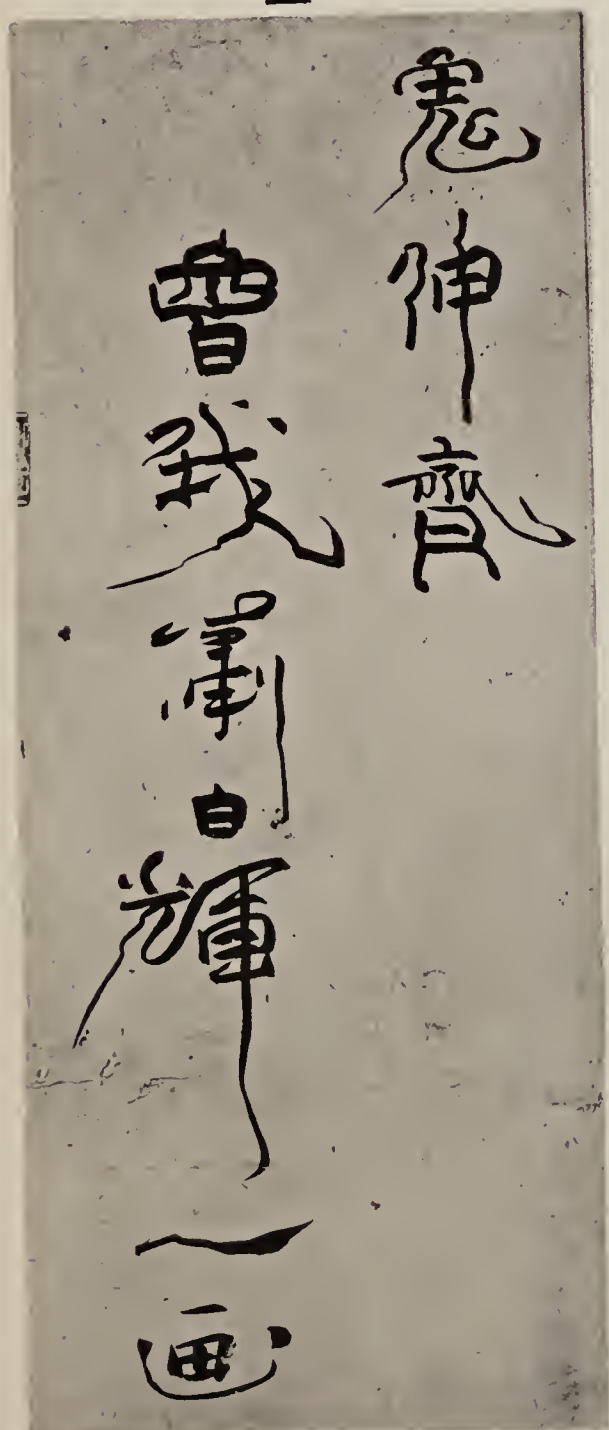 鬼神齋
曾我蕭白輝一画